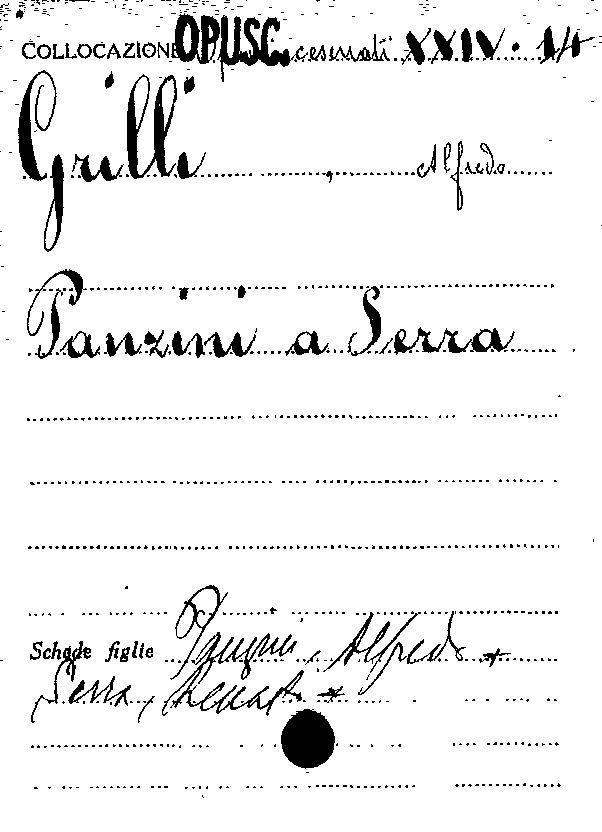 COLLOCAZIONE OPUSC. cesenati XXIV. 14
Grilli, Alfredo
Panzini a Serra
Schede figlie Panzini, Alfredo *
Serra, Renato *